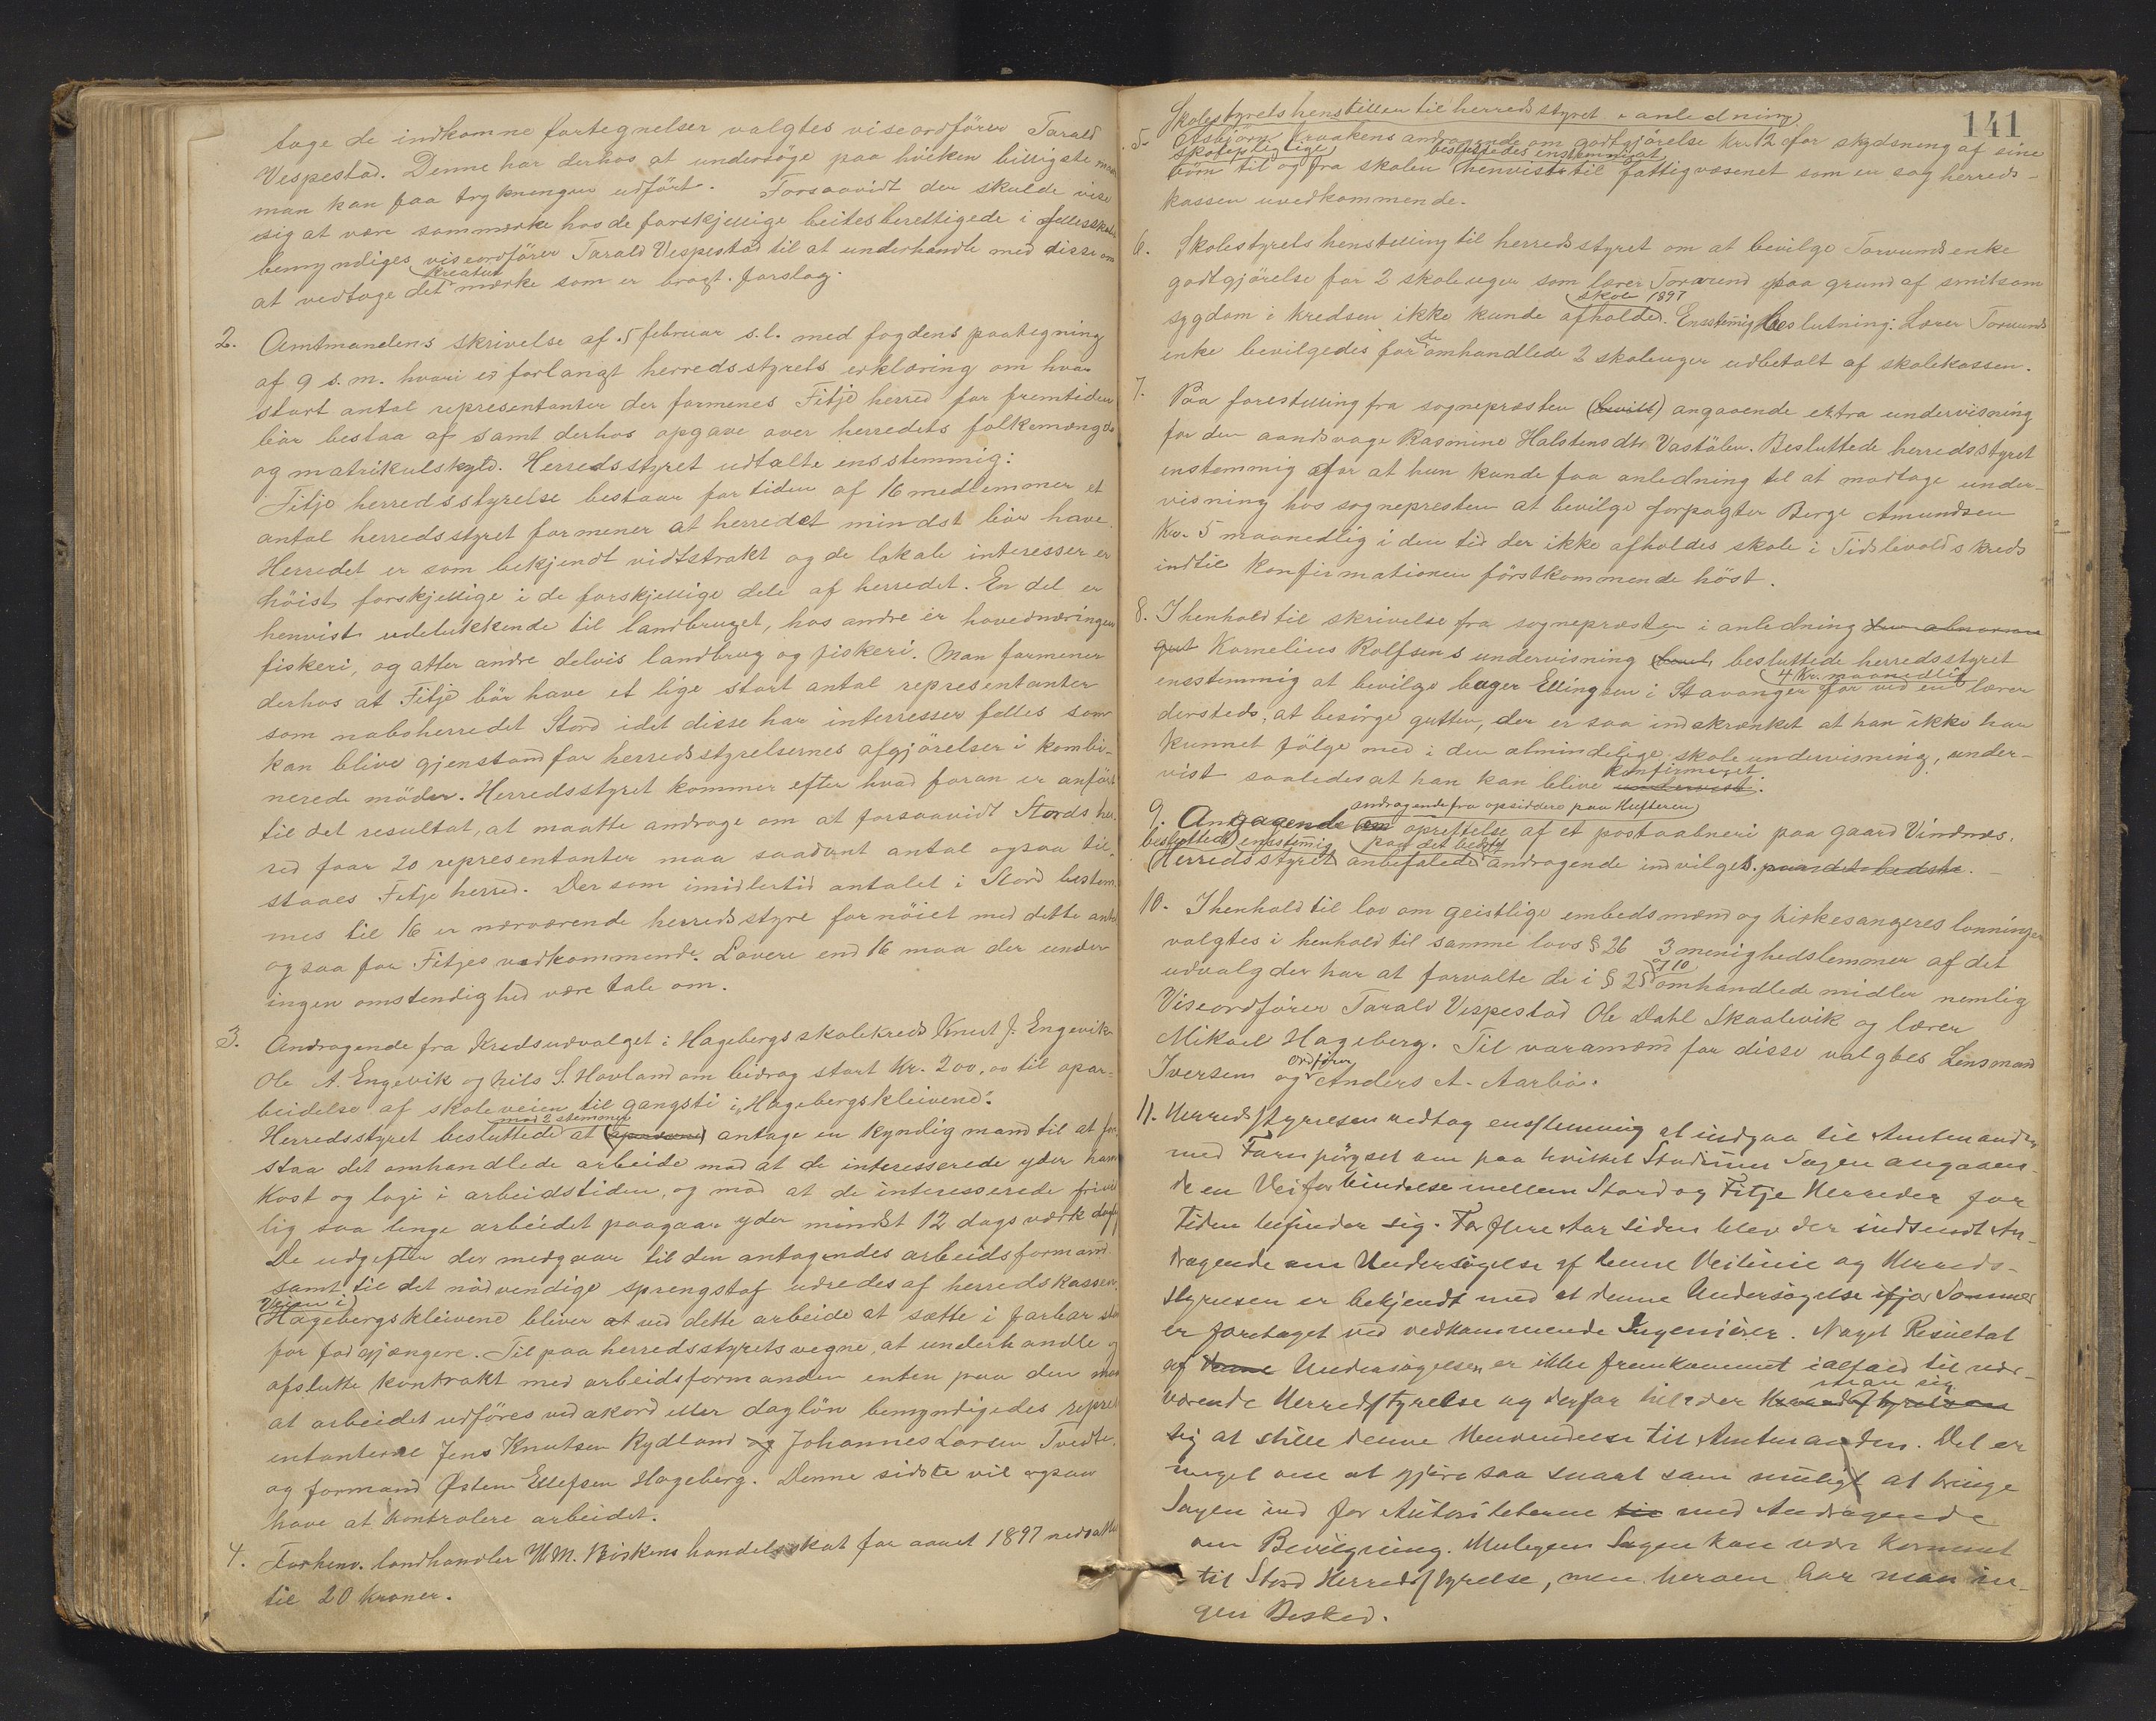 tage de indkomne fortegnelser valgtes viseordfører Tarald
Vespestad. Denne har derhos at undersöge paa hvilken billigste maade
man kan faa trykningen udført. Forsaavidt der skulde vise
sig at være sammærke hos de forskjellige beitesberettigede i
bemyndiges viseordfører Tarald Vespestad til at underhandle med disse om
at vedtage det kreatur mærke som er bragt i forslag.
2. Amtmandens skrivelse af 5 februar s.l. med fogdens paategning
af 9 s.m. hvori er forlangt herredsstyrets erklæring om hvor
stort antal representanter der formenes Fitje herred for fremtiden
bör bestaa af samt derhos opgave over herredets folkemængde
og matrikulskyld. Herredsstyret udtalte ensstemmig:
Fitje herredsstyrelse bestaar for tiden af 16 medlemmer et
antal herredsstyret formener at herredet mindst bör have.
Herredet er som bekjendt vidtstrakt og de lokale interesser er
höist forskjellige i de forskjellige dele af herredet. En del er
henvist udelukkende til landbruget, hos andre er hovednæringen
fiskeri, og atter andre delvis landbrug og fiskeri. Man formener
derhos at Fitje bör have et lige stort antal representanter
som naboherredet Stord idet disse har interresser felles som
kan blive gjenstand for herredsstyrelsernes afgjörelser i kombi-
nerede möder. Herredsstyret kommer efter hvad foran er anført
til det resultat, at maatte andrage om at forsaavidt Stords her-
red faar 20 representanter maa saadant antal ogsaa til-
staaes Fitje herred. Dersom imidlertid antallet i Stord bestem-
mes til 16 er nærværende herredsstyre fornöiet med dette antal
ogsaa for Fitjes vedkommende. Lavere end 16 maa der under
ingen omstendighed være tale om.
3. Andragende fra Kredsudvalget i Hagebergs skolekreds Knut J. Engevik
Ole A. Engevik og Nils S. Hovland om bidrag stort Kr. 200,00 til opar-
beidelse af skoleveien til gangsti i „Hagebergskleivene".
Herredsstyret besluttede mod 2 stemmer at antage en kyndig mand til at fore-
staa det omhandlede arbeide mod at de interesserede yder ham
Kost og logi i arbeidstiden, og mod at de interesserede frivil-
lig saa lenge arbeidet paagaar yder mindst 12 dagsværk daglig
De udgifter der medgaar til den antagendes arbeidsformand
samt til det nödvendige sprengstof udredes af herredskassen.
Veien i Hagebergskleivene bliver at ved dette arbeide at sætte i farbar stand
for fodgjængere. Til paa herredsstyrets vegne, at underhandle og
afslutte kontrakt med arbeidsformanden enten paa den maade
at arbeidet udföres ved akord eller daglön bemyndigedes repres-
entanterne Jens Knutsen Rydland og Johannes Larsen Tvedte,
og formand Østen Ellefsen Hageberg. Denne sidste vil ogsaa
have at kontrolere arbeidet.
4. Forhenv. landhandler W.M. Riskens handelsskat for aaret 1897 nedsattes
til 20 kroner.
141
Skolestyrets henstillen til herredsstyret i anledning
5. Asbjörn Kraakens andragende om godtgjörelse Kr. 12 for skydsning af sine
skolepligtige börn til og fra skolen besluttedes enstemmigt henvist til fattigvæsenet som en sag herreds-
kassen uvedkommende.
6. Skolestyrets henstilling til herredsstyret om at bevilge Torvunds enke
godtgjörelse for 2 skoleuger som lærer Torvund paa grund af smitsom
sygdom i kredsen ikke kunde afholde skole 1897. Ensstemig beslutning: Lærer Torvunds
enke bevilgedes for de omhandlede 2 skoleuger udbetalt af skolekassen.
7. Paa forestilling fra sognepræsten (bevilt) angaaende extra undervisning
for den aandsvage Rasmine Halstensdtr. Vastölen. Besluttede herredsstyret
enstemmig for at hun kunde faa anledning til at modtage under-
visning hos sognepresten at bevilge forpagter Berge Amundsen
Kr. 5 maanedlig i den tid der ikke afholdes skole i Tislevolds kreds
indtil konfirmationen förstkommende höst.
8. I henhold til skrivelse fra sognepræsten i anledning den abnorme
gut Kornelius Rolfsens undervisning besluttede herredsstyret
ensstemmig at bevilge bager Ellingsen i Stavanger 4 Kr. maanedlig for ved en lærer
dersteds, at besörge gutten, der er saa indskrænket at han ikke har
kunnet fölge med i den almindelige skoleundervisning, under-
vist saaledes at han kan blive konfirmeret undervist.
9. Angaaende andragende fra opsiddere paa Huftaren om oprettelse af et postaabneri paa gaard Vindnes.
Herredsstyret besluttede ensstemig anbefalede paa det bedste andragende indvilget paa det bedste.
10. I henhold til lov om geistlige embedsmænd og kirkesangeres lønninger
valgtes i henhold til samme lovs § 26 3 menighedslemmer af det
udvalg der har at forvalte de i § 25 og 10 omhandlede midler nemlig
Viseordfører Tarald Vespestad Ole Dahl Skaalevik og lærer
Mikael Hageberg. Til varamænd for disse valgtes Lensmand
Iversen og ordfører Anders A. Aarbö.
11. Herredsstyrelsen vedtog enstemmig at indgaa til Amtmanden
med Forespörgsel om paa hvilket Stadium Sagen angaaen-
de en Veiforbindelse mellem Stord og Fitje Herreder for
Tiden befinder sig. For flere Aar siden blev der indsendt An-
dragende om Undersögelse af denne Veilinie og Herreds-
styrelsen er bekjendt med at denne Undersögelse ifjor Sommer
er foretaget ved vedkommende Ingeniörer. Noget Resultat
af denne Undersögelsen er ikke fremkommet ialfald til nær-
værende Herredsstyrelse og derfor tillader man sig Herredsstyrelsen
sig at stille denne Henvendelse til Amtmanden. Det er
meget om at gjöre saa snart som muligt at bringe
Sagen ind for Autoriteterne til med Andragende
om Bevilgning. Muligens Sagen kan være kommet
til Stord Herredsstyrelse, men herom har man in-
gen Besked.